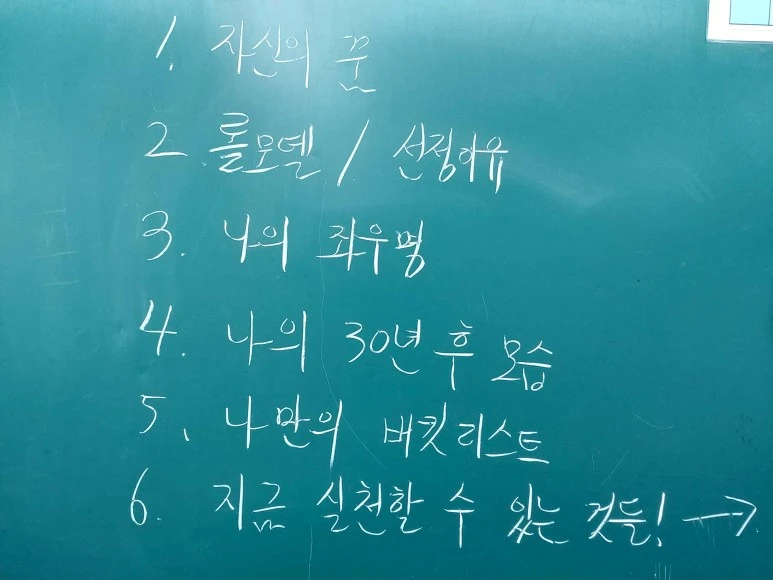 1. 자신의 꿈
2. 롤모델 / 선정이유
3. 나의 좌우명
4. 나의 30년 후 모습
5. 나만의 버킷리스트
6. 지금 실천할 수 있는 것들! →